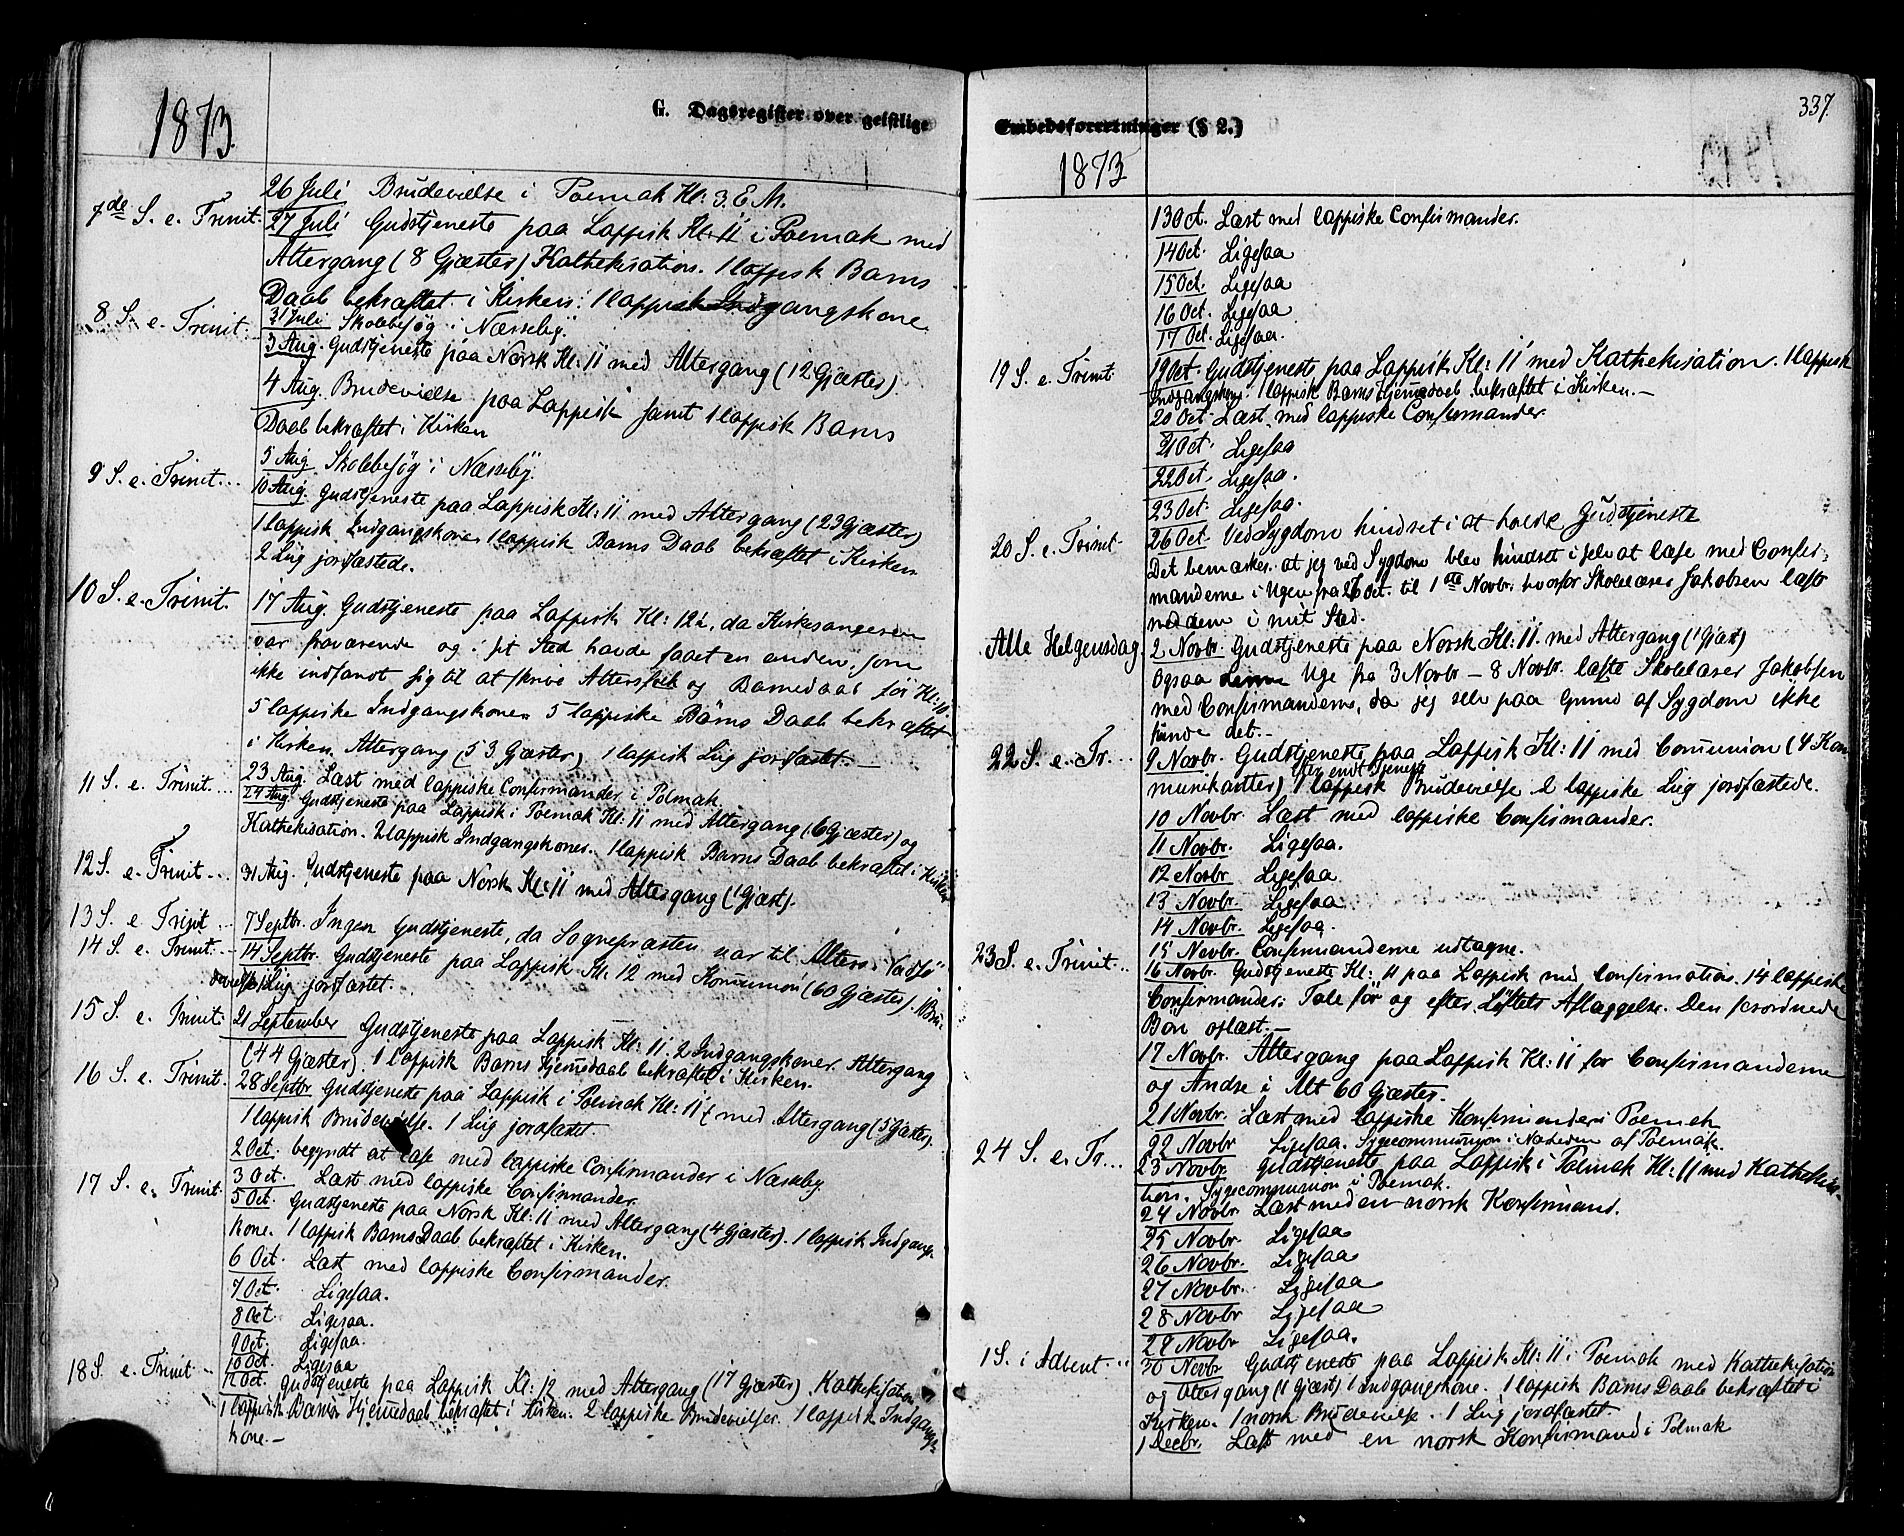 G. Dagsregister over geistlige
1873.
26 Juli Brudevielse i Polmak Kl: 3. E. M.
7de S. e. Trinit. 27 Juli Gudstjeneste paa Lappisk Kl: 11 i Polmak med
Altergang (8 Gjæster) Kathekisation. 1 lappisk Barns
Daab bekræftet i Kirken. 1 lappisk Indgangskone.
31 Juli Skolebesøg i Næsseby.
8 S. e. Trinit. 3 Aug. Gudstjeneste paa Norsk Kl: 11 med Altergang (12 Gjæster).
4 Aug. Brudevielse paa Lappisk samt 1 lappisk Barns
Daab bekræftet i Kirken
5 Aug. Skolebesøg i Næsseby.
9 S. e. Trinit... 10 Aug. Gudstjeneste paa Lappisk Kl: 11 med Altergang (23 Gjæster)
1 lappisk Indgangskone 1 lappisk Barns Daab bekræftet i Kirken
2 Liig jordfæstede.
10 S. e. Trinit. 17 Aug. Gudstjeneste paa Lappisk Kl: 12½, da Kirkesangeren
var fraværende og i sit Sted havde faaet en anden, som
ikke indfandt sig til at skrive Altersfolk og Barnedaab før Kl: 10.
5 lappiske Indgangskoner 5 lappiske Børns Daab bekræftet
i Kirken. Altergang (53 Gjæster) 1 lappisk Liig jordfæstet.—
23 Aug. Læst med lappiske Confirmander i Polmak.
11 S. e. Trinit... 24 Aug. Gudstjeneste paa Lappisk i Polmak Kl: 11 med Altergang (6 Gjæster) og
Kathekisation. 2 lappisk Indgangskoner. 1 lappisk Barns Daab bekræftet i Kirken
12 S. e. Trinit... 31 Aug. Gudstjeneste paa Norsk Kl: 11 med Altergang (1 Gjæst).
13 S. e. Trinit... 7 Septbr. Ingen Gudstjeneste, da Sognepræsten var til Alters i Vadsø
14 S. e. Trinit... 14 Septbr. Gudstjeneste paa Lappisk Kl: 12 med Komunion (60 Gjæster). 1 Bru-
devielse 1 Liig jordfæstet.
15 S. e. Trinit. 21 September Gudstjeneste paa Lappisk Kl: 11. 2 Indgangskoner. Altergang
(44 Gjæster). 1 lappisk Barns Hjemedaab bekræftet i Kirken.
16 S. e. Trinit. 28 Septbr Gudstjeneste paa Lappisk i Polmak Kl: 11 med Altergang (5 Gjæster).
1 lappisk Brudevielse. 1 Liig jordfæstet.
2 Oct. begyndt at læse med lappiske Confirmander i Næsseby
3 Oct. Læst med lappiske Confirmander.
17 S. e. Trinit. 5 Oct. Gudstjeneste paa Norsk Kl: 11 med Altergang (4 Gjæster). 1 lappisk Indgangs-
kone. 1 lappisk Barns Daab bekræftet i Kirken.
6 Oct. Læst med lappiske Confirmander.
7 Oct. Ligesaa.
8 Oct. Ligesaa.
9 Oct. Ligesaa.
10 Oct. Ligesaa
18 S. e. Trinit. 12 Oct. Gudstjeneste paa Lappisk Kl: 12 med Altergang (17 Gjæster). Kathekisation
1 lappisk Barns Hjemedaab bekræftet i Kirken. 2 lappiske Brudevielser. 1 lappisk Indgangs-
kone.—
Embedsforretninger (§ 2.)
337.
1873
13 Oct. Læst med lappiske Confirmander.
14 Oct. Ligesaa
15 Oct. Ligesaa
16 Oct. Ligesaa
17 Oct. Ligesaa.
19 S. e. Trinit. 19 Oct. Gudstjeneste paa Lappisk Kl: 11 med Kathekisation. 1 lappisk
Indgangskone. 1 lappisk Barns Hjemedaab bekræftet i Kirken.—
20 Oct. Læst med lappiske Confirmander.
21 Oct. Ligesaa
22 Oct. Ligesaa.
23 Oct. Ligesaa.
20 S. e. Trinit. 26 Oct. Ved Sygdom hindret i at holde Gudstjeneste
Det bemærkes at jeg ved Sygdom blev hindret i selv at læse med Confir-
manderne i Ugen fra 26 Oct. til 1ste Novbr. hvorfor Skolelærer Jakobsen læste
med dem i mit Sted.
Alle Helgensdag. 2 Novbr. Gudstjeneste paa Norsk Kl: 11. med Altergang (1 Gjæst)
Ogsaa denne Uge fra 3 Novbr – 8 Novbr. læste Skolelærer Jakobsen
med Confirmanderne, da jeg selv paa Grund af Sygdom ikke
kunde det.—
22 S. e. Tr... 9 Novbr. Gudstjeneste paa Lappisk Kl: 11 med Communion (4 Kom-
munikanter) 1 lappisk Brudevielse efter endt Tjeneste 2 lappiske Liig jordfæstede.
10 Novbr. Læst med lappiske Confirmander.
11 Novbr. Ligesaa.
12 Novbr Ligesaa
13 Novbr. Ligesaa.
14 Novbr. Ligesaa.
15 Novbr. Confirmanderne udtagne.
23 S. e. Trinit... 16 Novbr. Gudstjeneste Kl: 11 paa Lappisk med Confirmation. 14 lappiske
Confirmander. Tale før og efter Løftets Aflæggelse. Den forordnede
Bøn oplæst.—
17 Novbr. Altergang paa Lappisk Kl: 11 for Confirmanderne
og Andre i Alt 60 Gjæster.
21 Novbr. Læst med lappiske Konfirmander i Polmak
22 Novbr Ligesaa. Sygecommunion i Nærheden af Polmak.
24 S. e. Tr... 23 Novbr. Gudstjeneste paa Lappisk i Polmak Kl: 11 med Kathekisa-
tion. Sygecommunion i Polmak.
24 Novbr Læst med en norsk Konfirmand.
25 Novbr. Ligesaa
26 Novbr. Ligesaa
27 Novbr. Ligesaa
28 Novbr Ligesaa
29 Novbr Ligesaa.
1 S. i Advent... 30 Novbr Gudstjeneste paa Lappisk Kl: 11 i Polmak med Kathekisation
og Altergang (1 Gjæst) 1 Indgangskone. 1 lappisk Barns Daab bekræftet i
Kirken. 1 norsk Brudevielse. 1 Liig jordfæstet.
1 Decbr. Læst med en norsk Konfirmand i Polmak